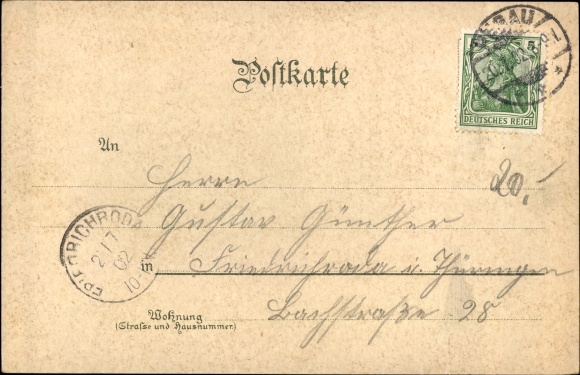 DESSAU
5
DEUTSCHES REICH
Postkarte
An
Herrn
20,-
Gustav Günther
FRIEDRICHRODA
2 17
02
10
in Friedrichroda i. Thüringen
Wohnung
(Strasse und Hausnummer)
Bachstraße 28